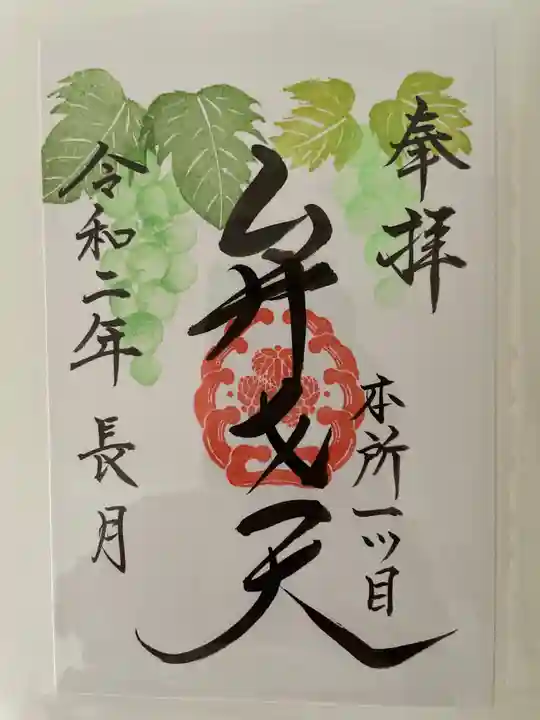 奉拝
本所一ツ目
弁才天
令和二年 長月